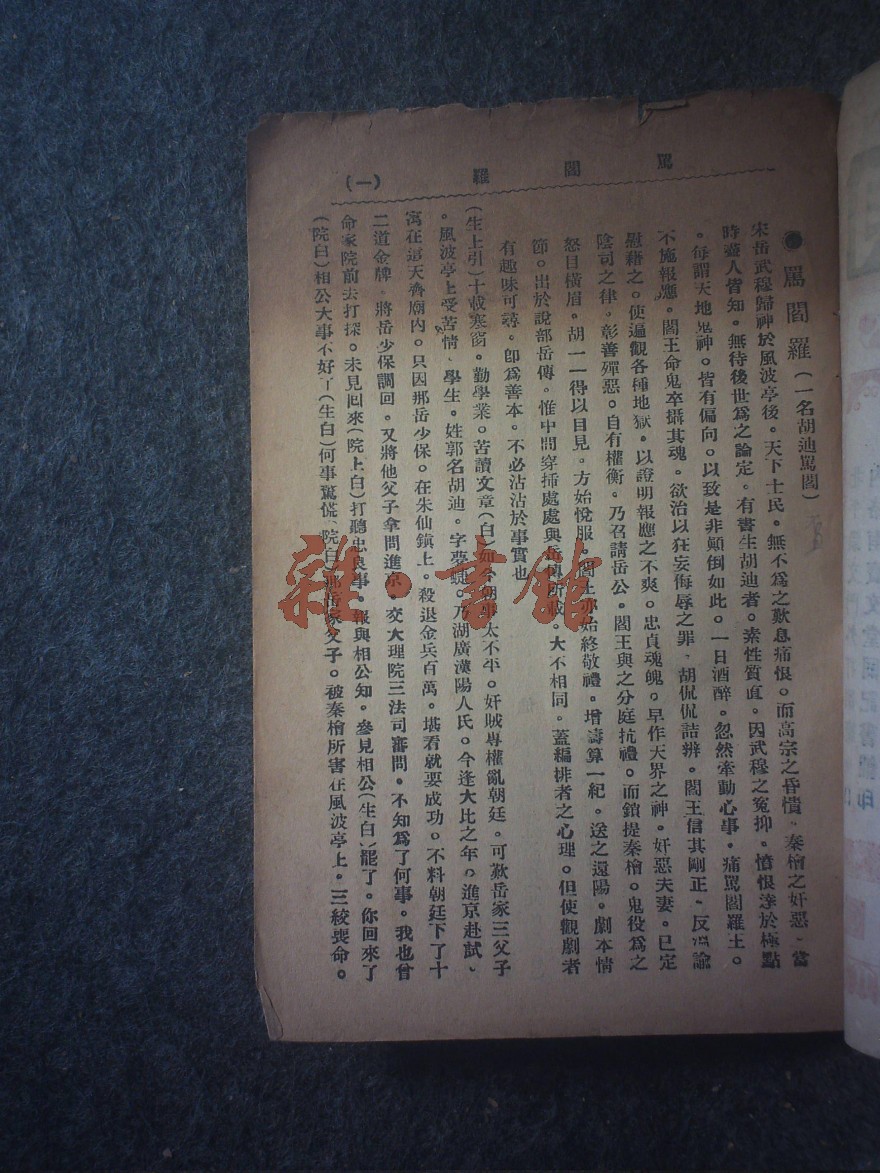 罵閻羅
(一)
●罵閻羅(一名胡迪罵閻)
宋岳武穆歸神於風波亭後。天下士民。無不爲之歎息痛恨。而高宗之昏憒。秦檜之奸惡、當
時蓋人皆知。無待後世爲之論定。有書生胡迪者。素性質直。因武穆之冤抑。憤恨達於極點
。每謂天地鬼神。皆有偏向。以致是非顛倒如此。一日酒醉。忽然牽動心事。痛罵閻羅王。
不施報應。閻王命鬼卒攝其魂。欲治以狂妄侮辱之罪、胡侃侃詰辨。閻王信其剛正、反 諭
慰藉之。使遍觀各種地獄。以證明報應之不爽。忠貞魂魄。早作天界之神。奸惡夫妻。已定
陰司之律。彰善殫惡。自有權衡。乃召請岳公。閻王與之分庭抗禮。而鎖提秦檜。鬼役爲之
怒目橫眉。胡一一得以目見。方始悅服。閻王亦始終敬禮。增壽算一紀。送之還陽。劇本情
節。出於說部岳傳。惟中間穿揷處處與岳傳所載。大不相同。蓋編排者之心理。但使觀劇者
有趣味可尋。卽爲善本。不必沾沾於事實也
(生上引)十載寒窗。勤學業。苦讀文章(白)如今朝事太不平。奸賊專權亂朝廷。可歎岳家三父子
。風波亭上受苦情、學生。姓郭名胡迪。字夢蝶。乃湖廣漢陽人氏。今逢大比之年。進京赴試、
寓在這天齊廟內。只因那岳少保。在朱仙鎭上。殺退金兵百萬。堪看就要成功。不料朝廷下了十
二道金牌。將岳少保調回。又將他父子拿問進京。交大理院三法司審問。不知爲了何事。我也曾
命家院前去打探。未見囘來(院上白)打聽忠良事。報與相公知。參見相公(生白)罷了。你回來了
(院白)相公大事不好了(生白)何事驚慌(院白)那岳家父子。被秦檜所害在風波亭上。三絞喪命。
雜·書館
印